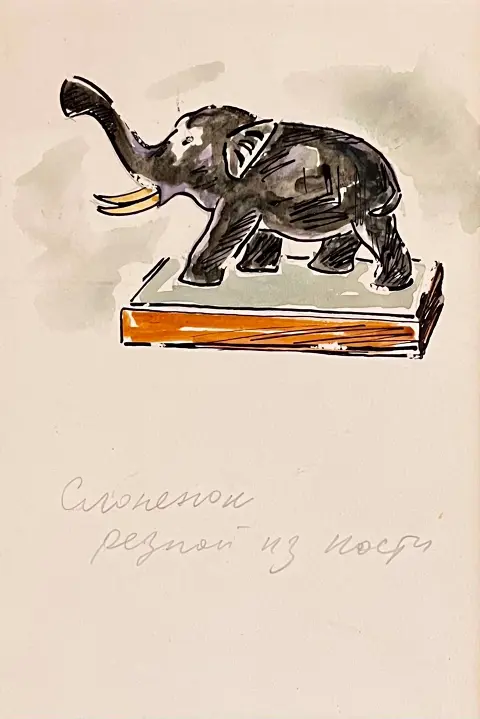 Слоненок
резной из кости